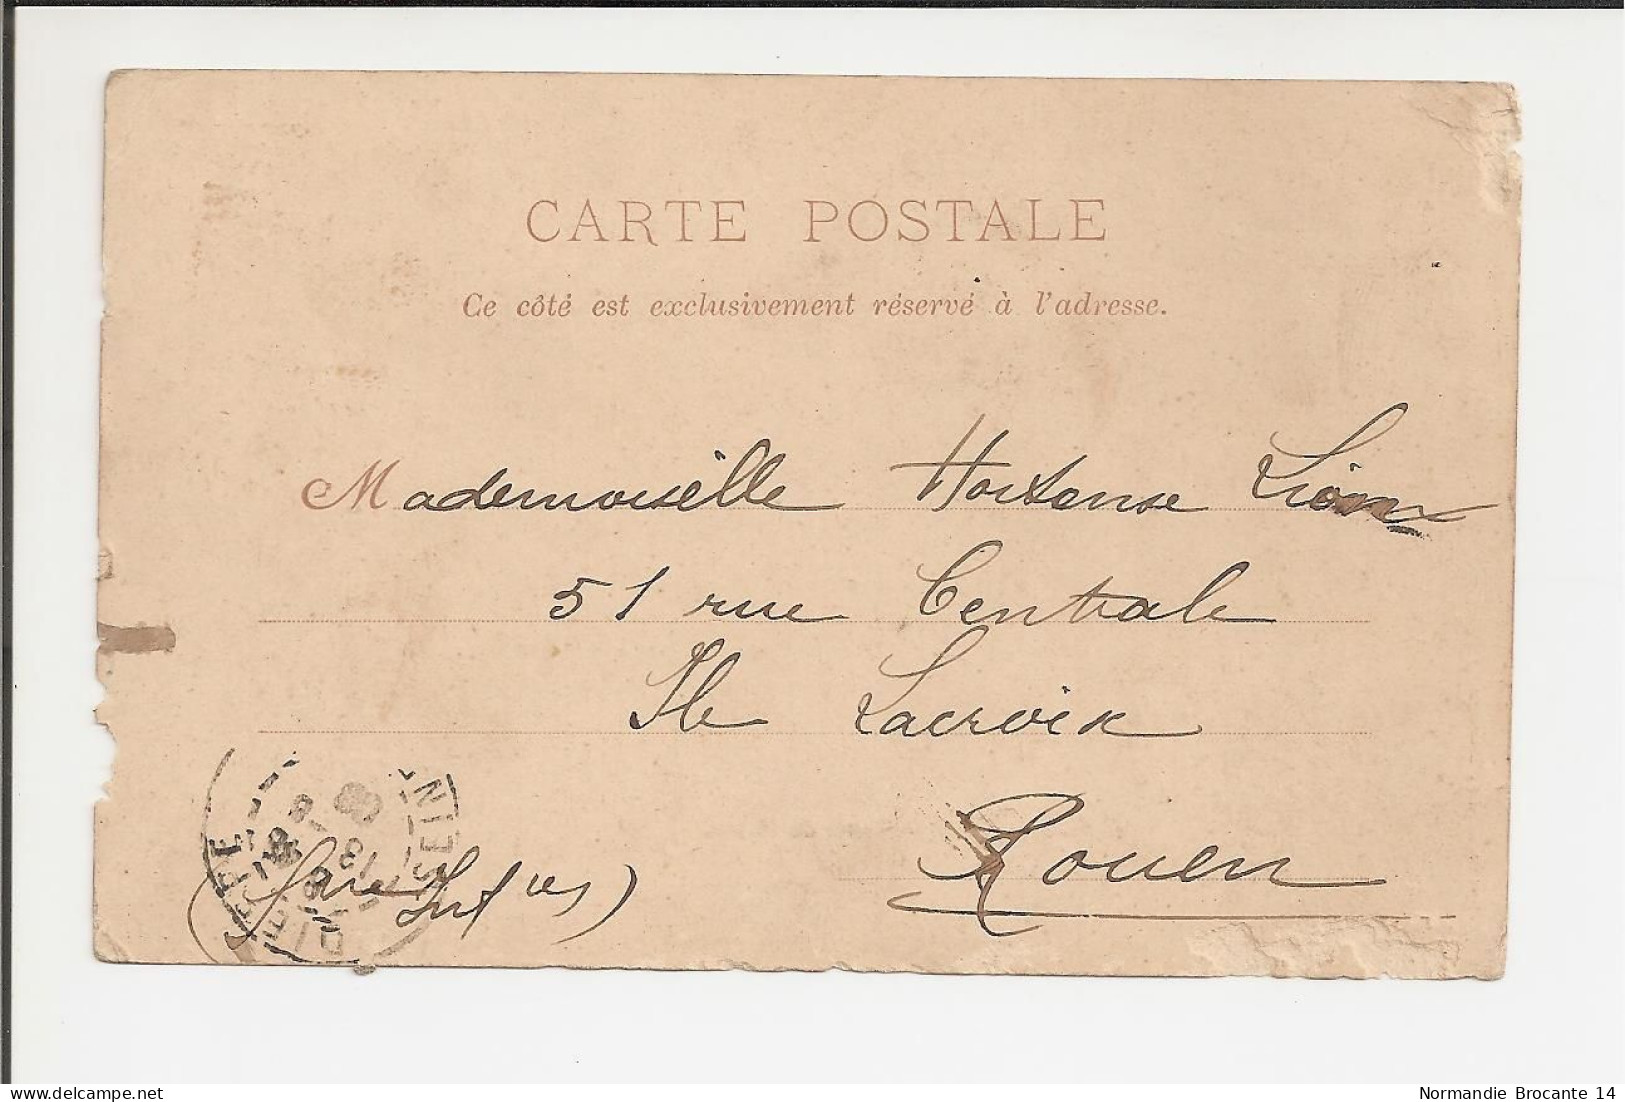 CARTE POSTALE
Ce côté est exclusivement réservé à l'adresse.
Mademoiselle Hortense
51 rue Centrale
Ile Lacroix
Rouen
(Seine Infres)
DIEPPE
Normandie Brocante 14